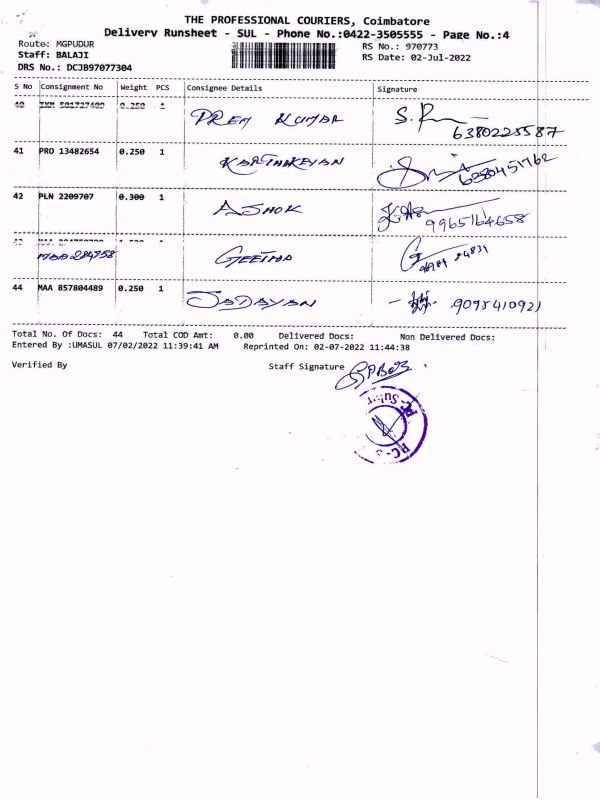 THE PROFESSIONAL COURIERS, Coimbatore
Delivery Runsheet - SUL - Phone No.:0422-3505555 - Page No.:4
Route: MGPUDUR
RS No.: 970773
Staff: BALAJI
RS Date: 02-Jul-2022
DRS No.: DCJB97077304
S No Consignment No Weight PCS Consignee Details Signature
40 0.250 1 PREM KUMAR S.
6380225587
41 PRO 13482654 0.250 1 KARTHIKEYAN
6380451762
42 PLN 2209707 0.300 1 ASHOK
9965164658
43 1
GEETHA
44 MAA 857804489 0.250 1 SADAYAN 9095410921
Total No. Of Docs: 44 Total COD Amt: 0.00 Delivered Docs: Non Delivered Docs:
Entered By :UMASUL 07/02/2022 11:39:41 AM Reprinted On: 02-07-2022 11:44:38
Verified By Staff Signature